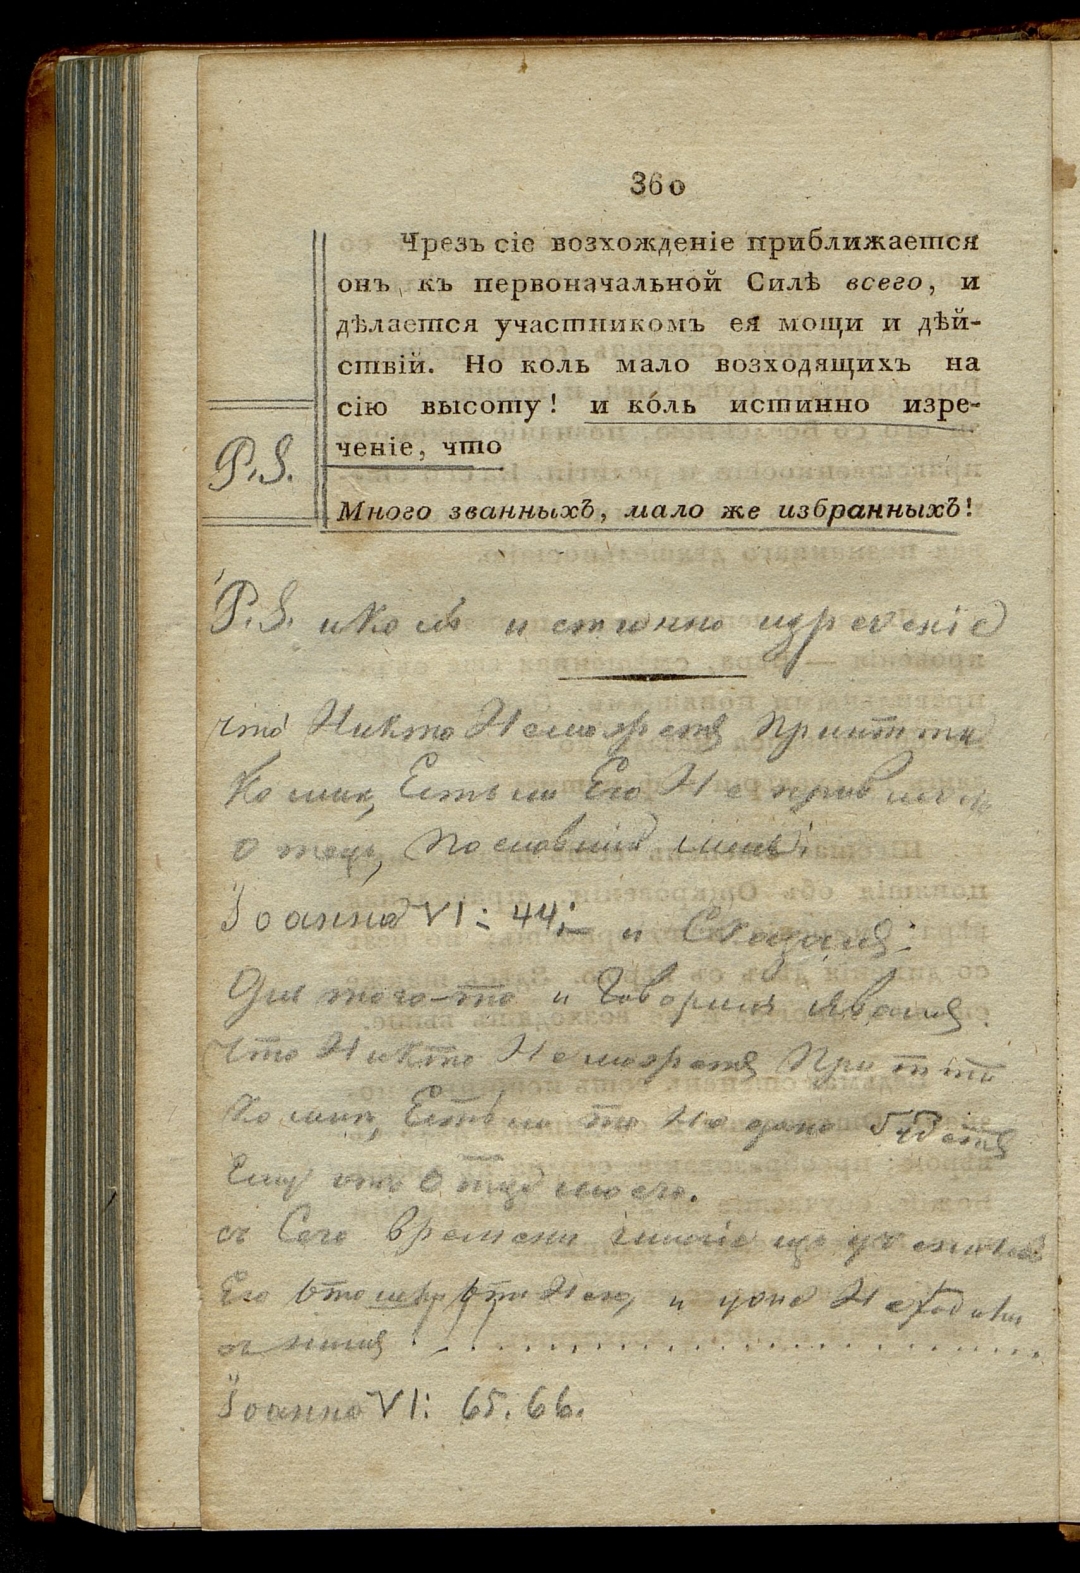 360
Чрезъ сіе возхожденіе приближается
онъ къ первоначальной Силѣ всего, и
дѣлается участникомъ ея мощи и дѣй-
ствій. Но коль мало возходящихъ на
сію высоту! и ко́ль истинно изре-
ченіе, что
P.S.
Много званныхъ, мало же избранныхъ!
P.S. и Коль истинно изреченіе
что Никто Неможетъ Притти
Ко мнѣ, Естьли Его Не привлечетъ
Отецъ, Пославшій
Іоанна VI: 44; и Сказалъ:
Для того-то и Говорилъ я вамъ
Что Никто Неможетъ Притти
Ко мнѣ, Естьли то Не дано будетъ
Ему отъ Отца моего.
съ Сего времени многіе
Его и уже Не ходили
съ нимъ . . . . . . . . . . . . . . . . . . . .
Іоанна VI: 65. 66.